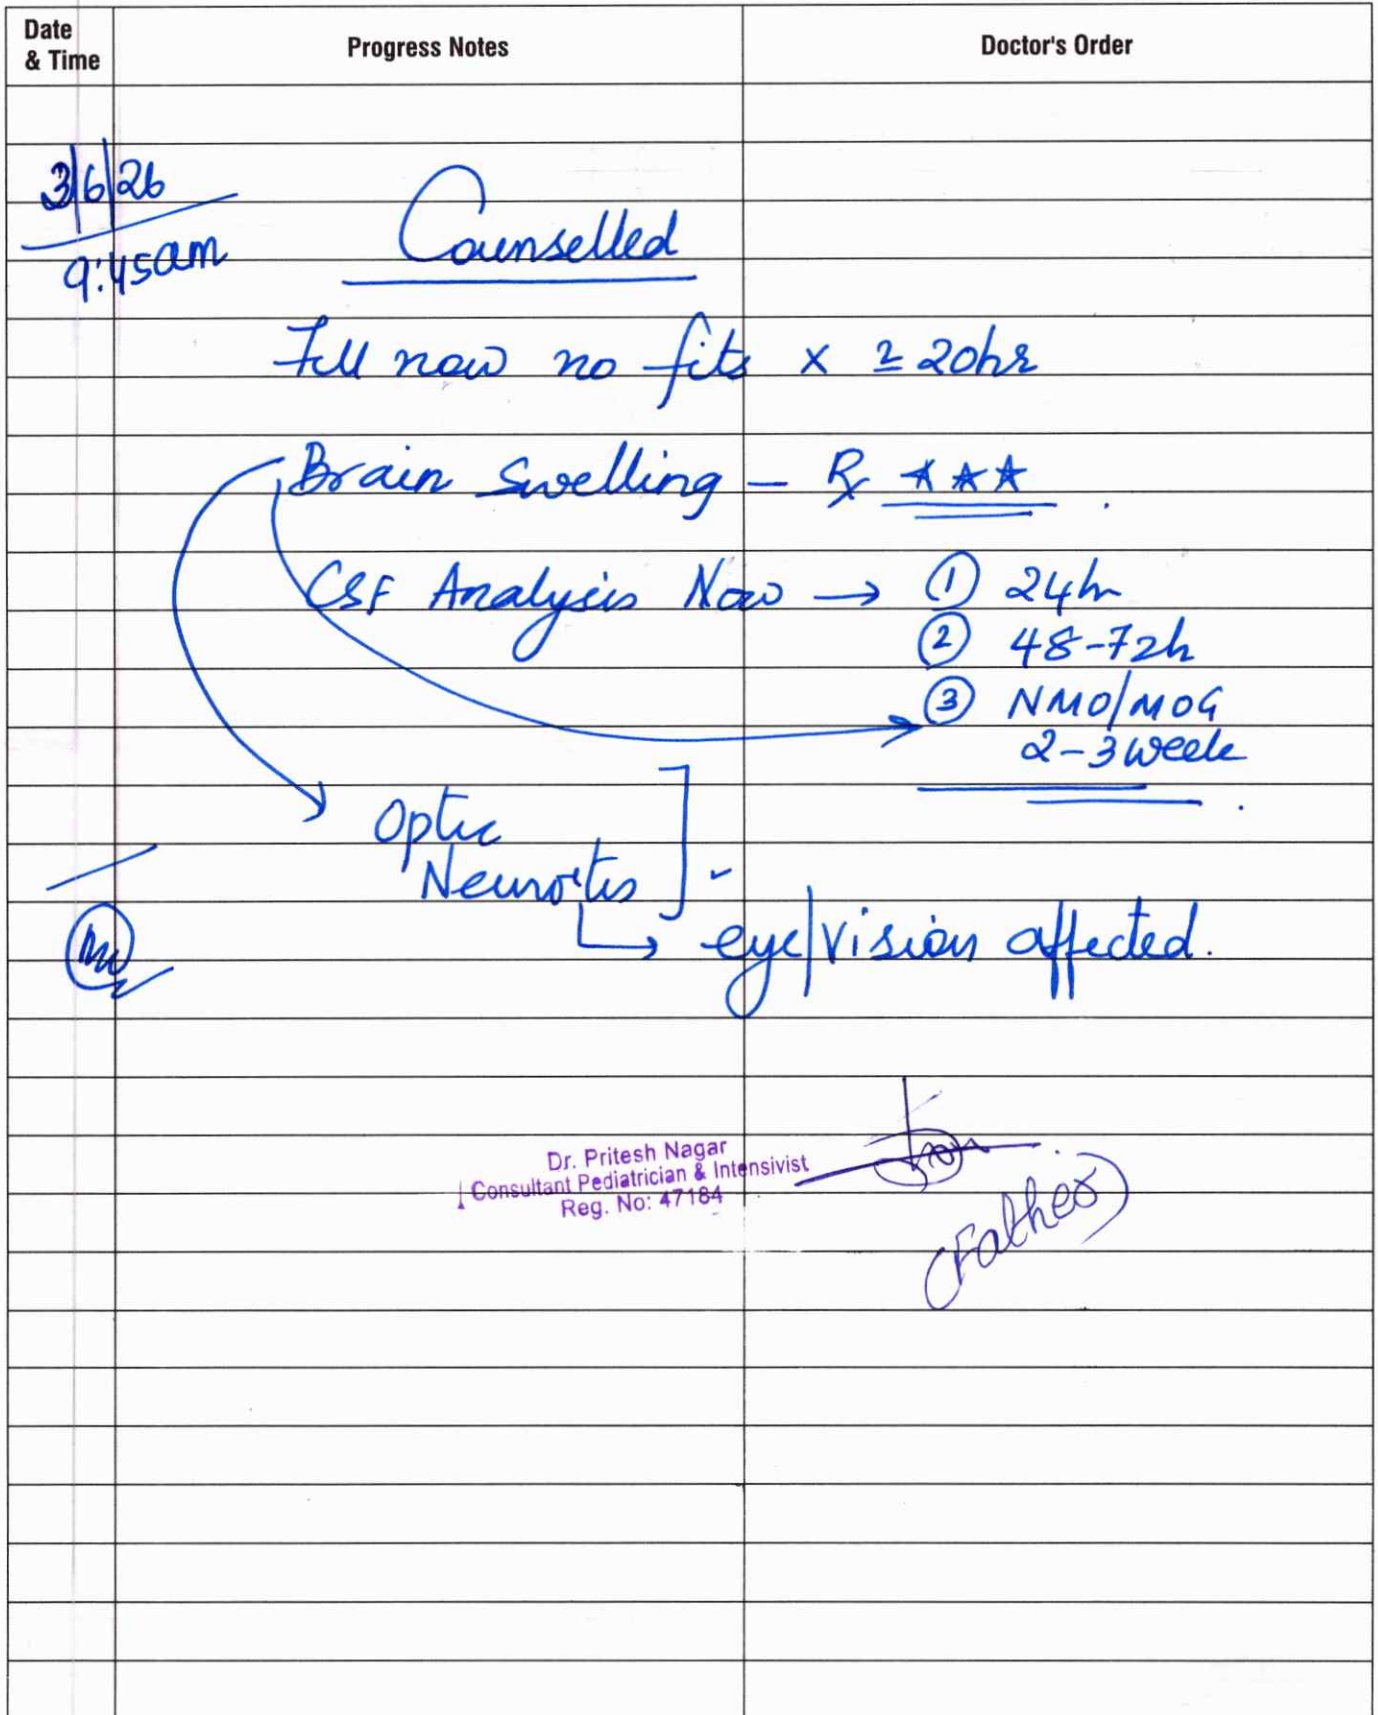 Date & Time
Progress Notes
Doctor's Order
3/6/26
9:45am
Counselled
Till now no fits x ≥ 20hr
Brain Swelling - Rx ★★★
CSF Analysis Now → ① 24hr
② 48-72h
③ NMO/MOG
2-3 week
Optic
Neuroitis
eye/vision affected.
Dr. Pritesh Nagar
Consultant Pediatrician & Intensivist
Reg. No: 47184
(Father)